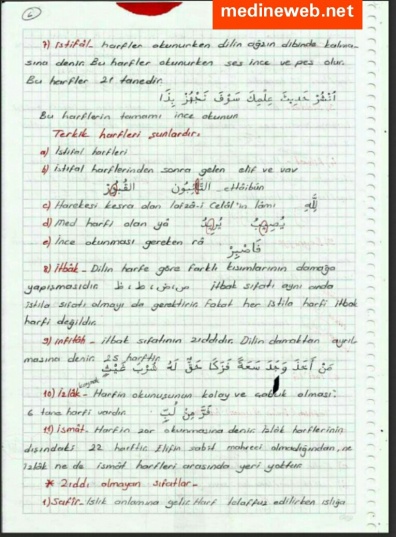 6
medineweb.net
7) İstifâl- harfler okunurken dilin ağzın dibinde kalma-
sına denir. Bu harfler okunurken ses ince ve pes olur.
Bu harfler 21 tanedir.
اُنْشُرْ حَدِيثَ عِلْمِكَ سَوْفَ تُجَهَّزُ بِذَا
Bu harflerin tamamı ince okunur
Terkik harfleri şunlardır.
a) İstifal harfleri
b) istifal harflerinden sonra gelen elif ve vav
c) Harekesi kesra olan lafzâ-i Celâl'in lâmı لِلّٰهِ
d) Med harfi olan yâ
e) İnce okunması gereken râ فَاصْبِرْ
8) itbâk- Dilin harfe göre farklı kısımlarının damağa
yapışmasıdır. ص ض ط ظ itbak sıfatı aynı anda
istila sıfatı olmayı da gerektirir. Fakat her istila harfi itbak
harfi değildir.
9) infitâh- itbak sıfatının zıddıdır. Dilin damaktan ayrıl-
masına denir. 25 harftir
مَنْ أَخَذَ وَجَدَ سَعَةً فَزَكَا حَقٌّ لَهُ شُرْبُ غَيْثٍ
10) İzlâk- Harfin okunuşunun kolay ve çabuk olması.
6 tane harfi vardır. فَرَّ مِنْ لُبٍّ
11) ismât. Harfin zor okunmasına denir. İzlâk harflerinin
dışındaki 22 harftir. Elifin sabit mahreci olmadığından, ne
izlâk ne de ismât harfleri arasında yeri yoktur.
* Zıddı olmayan sıfatlar-
1) Safîr- Islık anlamına gelir. Harf telaffuz edilirken ıslığa